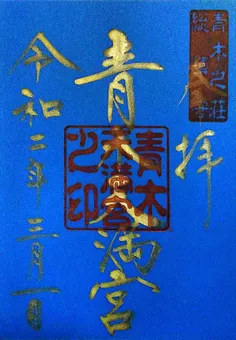 青木之荘
総鎮守
奉拝
青木天満宮
青木
天満宮
之印
令和二年 三月一日